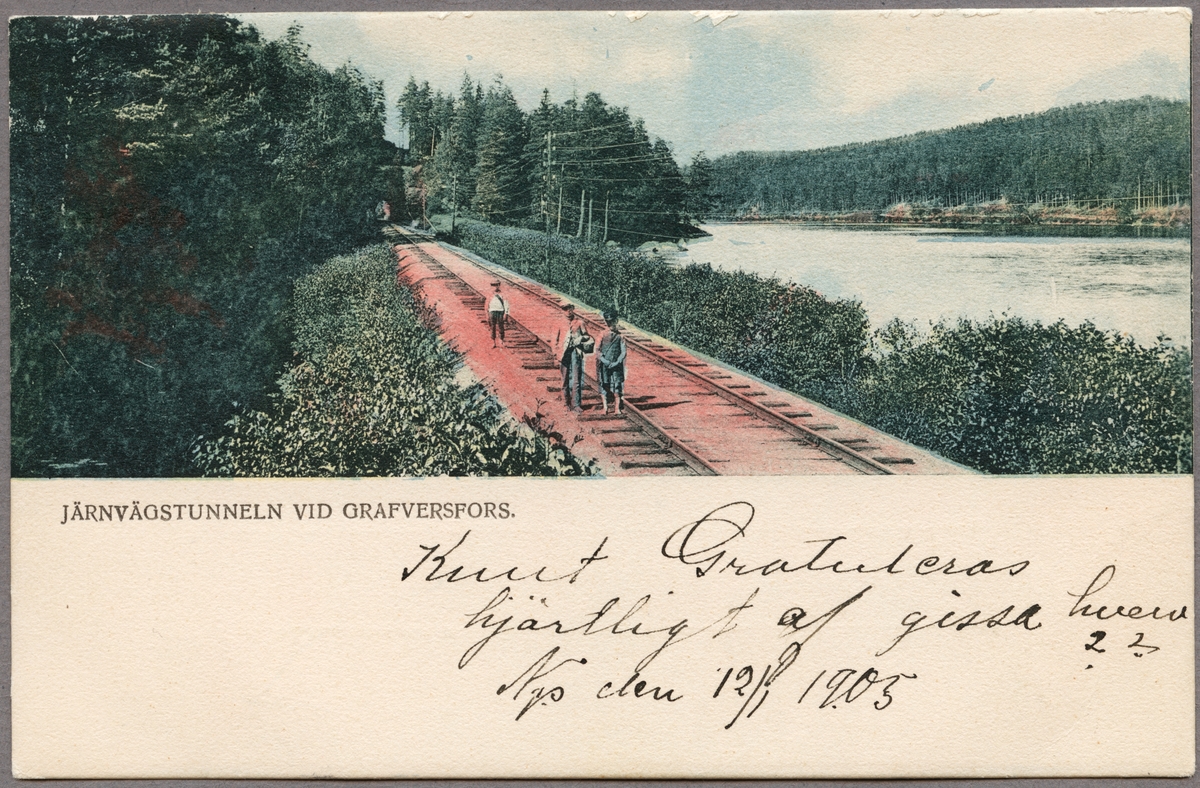 JÄRNVÄGSTUNNELN VID GRAFVERSFORS.
Knut Gratuleras
hjärtligt af gissa hvem
? ?
Nps den 12/1 1905